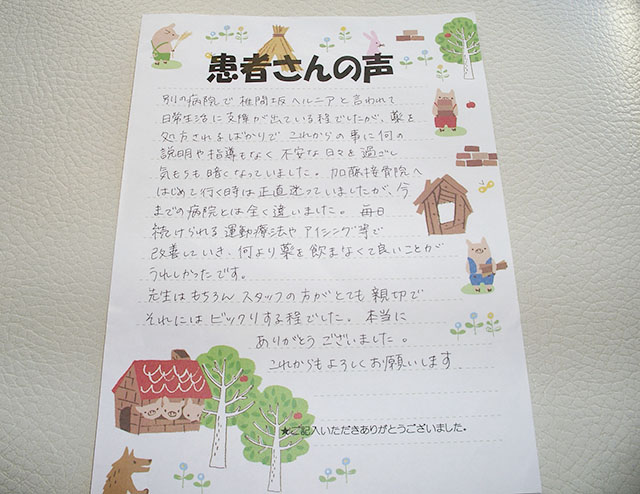 患者さんの声
別の病院で椎間板ヘルニアと言われて
日常生活に支障が出ている程でしたが、薬を
処方されるばかりで これからの事に何の
説明や指導もなく 不安な日々を過ごし
気もちも暗くなっていました。加藤接骨院へ
はじめて行く時は正直迷っていましたが、今
までの病院とは全く違いました。毎日
続けられる運動療法やアイシング等で
改善していき、何より薬を飲まなくて良いことが
うれしかったです。
先生はもちろん スタッフの方がとても親切で
それにはビックリする程でした。本当に
ありがとうございました。
これからもよろしくお願いします
★ご記入いただきありがとうございました。